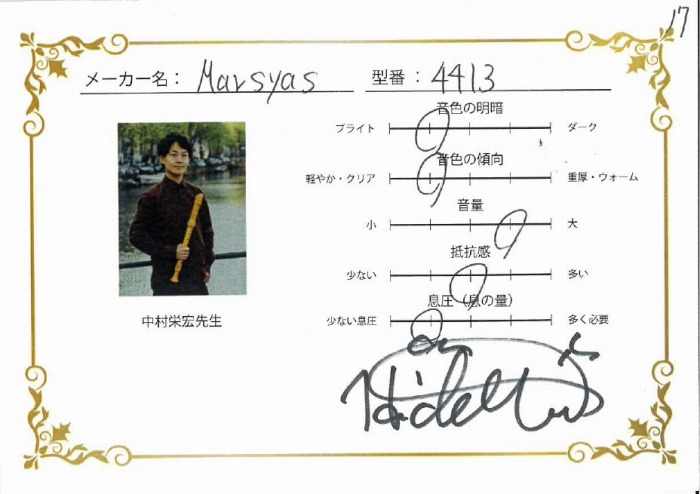 17
メーカー名： Marsyas 型番： 4413
音色の明暗
ブライト ダーク
音色の傾向
軽やか・クリア 重厚・ウォーム
音量
小 大
抵抗感
少ない 多い
息圧（息の量）
少ない息圧 多く必要
中村栄宏先生